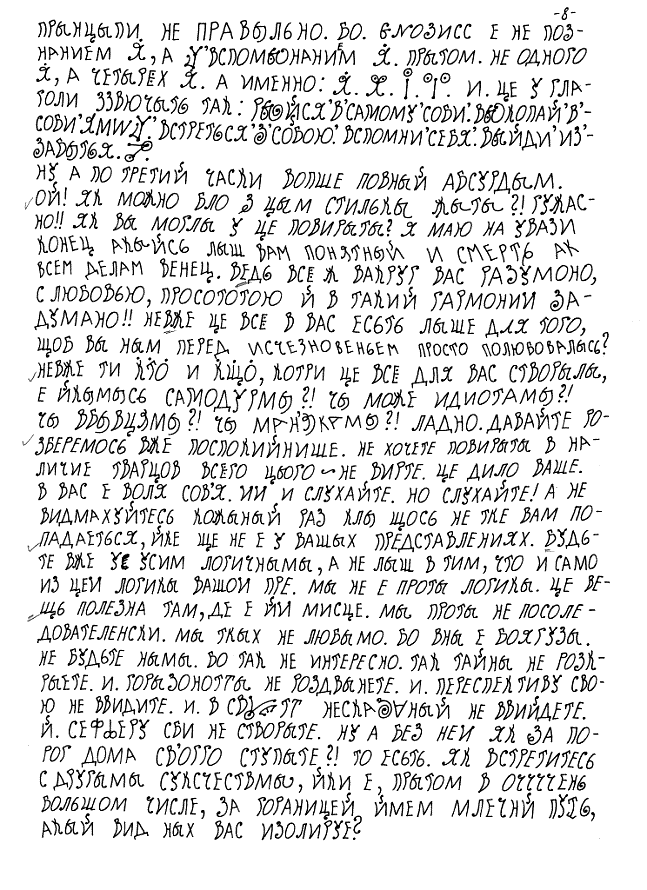 -8-
ПРЫНЦЫПИ. НЕ ПРАВЫЛЬНО. БО. ГНОЗИСС Е НЕ ПОЗ-
НАНИЕМ Я, А ВСПОМЫНАНИМ Я. ПРЫТОМ. НЕ ОДНОГО
Я, А ЧЕТЫРЕХ Я. А ИМЕННО: И. ЦЕ У ГЛА-
ГОЛИ ЗЗВЮЧЫТЬ ТАК: В'САМОМУ'СОВИ. ВЫКОПАЙ'В'-
СОВИ' ВСТРЕТЬСЯ'З'СОБОЮ. ВСПОМНИ'СЕБЯ'. ВЫЙДИ'ИЗ'-
ЗАБЫТЬЯ.
НУ А ПО ТРЕТИЙ ЧАСКИ ВОПШЕ ПОВНЫЙ АБСУРДЫМ.
ОЙ! ЯК МОЖНО БЛО З ЦЫМ СТИЛЬКЫ ЖЫТЫ?! ГУЖАС-
НО!! ЯК ВЫ МОГЛЫ У ЦЕ ПОВИРЫТЫ? Я МАЮ НА УВАЗИ
КОНЕЦ АКЫЙСЬ ЛЫШ ВАМ ПОНЯТНЫЙ И СМЕРТЬ АК
ВСЕМ ДЕЛАМ ВЕНЕЦ. ВЕДЬ ВСЕ Ж ВАКРУГ ВАС РАЗУМОНО,
С ЛЮБОВЬЮ, ПРОСОТОТОЮ Й В ТАКИЙ ГАРМОНИИ ЗА-
ДУМАНО!! НЕВЖЕ ЦЕ ВСЕ В ВАС ЕСЬТЬ ЛЫШЕ ДЛЯ ТОГО,
ЩОБ ВЫ НЫМ ПЕРЕД ИСЧЕЗНОВЕНЬЕМ ПРОСТО ПОЛЮБОВАЛЫСЬ?
НЕВЖЕ ТИ КТО И КЩО, КОТРИ ЦЕ ВСЕ ДЛЯ ВАС СТВОРЫЛЫ,
Е ЙКЫМЫСЬ САМОДУРМЫ?! ЧЫ МОЖЕ ИДИОТАМЫ?!
ЧЫ ЧЫ ЛАДНО. ДАВАЙТЕ РО-
ЗБЕРЕМОСЬ ВЖЕ ПОСПОКИЙНИШЕ. НЕ ХОЧЕТЕ ПОВИРЫТЫ В НА-
ЛИЧИЕ ТВАРЦОВ ВСЕГО ЦЬОГО ~ НЕ ВИРТЕ. ЦЕ ДИЛО ВАШЕ.
В ВАС Е ВОЛЯ СОВ'Я. ИИ И СЛУХАЙТЕ. НО СЛУХАЙТЕ! А НЕ
ВИДМАХУЙТЕСЬ КОЖЫНЫЙ РАЗ КЛЫ ЩОСЬ НЕ ТКЕ ВАМ ПО-
ПАДАЕТЬСЯ, ЙКЕ ЩЕ НЕ Е У ВАШЫХ ПРЕДСТАВЛЕНИЯХ. БУДЬ-
ТЕ ВЖЕ УЕ УСИМ ЛОГИЧНЫМЫ, А НЕ ЛЫШ В ТИМ, ЧТО И САМО
ИЗ ЦЕЙ ЛОГИКЫ ВАШОЙ ПРЕ. МЫ НЕ Е ПРОТЫ ЛОГИКЫ. ЦЕ ВЕ-
ЩЬ ПОЛЕЗНА ТАМ, ДЕ Е ЙИ МИСЦЕ. МЫ ПРОТЫ НЕ ПОСОЛЕ-
ДОВАТЕЛЕНСКИ. МЫ ТКЫХ НЕ ЛЮБЫМО. БО ВНЫ Е БОЯГУЗЫ.
НЕ БУДЬТЕ НЫМЫ. БО ТАК НЕ ИНТЕРЕСНО. ТАК ТАЙНЫ НЕ РОЗК-
РЫЕТЕ. И. ГОРЫЗОНОТТЫ НЕ РОЗДВЫНЕТЕ. И. ПЕРЕСПЕКТИВУ СВО-
Ю НЕ ВВИДИТЕ. И. В НЕСКАЗАННЫЙ НЕ ВВИЙДЕТЕ.
Й. СЕФЬЕРУ СВИ НЕ СТВОРЫТЕ. НУ А БЕЗ НЕИ ЯК ЗА ПО-
РОГ ДОМА СВ'ОГГО СТУПЫТЕ?! ТО ЕСЬТЬ. ЯК ВСТРЕТИТЕСЬ
С ДРУГЫМЫ СУКСЧЕСТВМЫ, ЙКИ Е, ПРЫТОМ В ОЧЧЧЧЕНЬ
БОЛЬШОМ ЧИСЛЕ, ЗА ГОРАНИЦЕЙ, ИМЕМ МЛЕЧНИЙ ПУТЬ,
АКЫЙ ВИД НЫХ ВАС ИЗОЛИРУЕ?